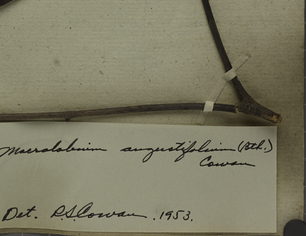 Macrolobium angustifolium (Bth.)
Cowan
Det. R.S.Cowan, 1953.